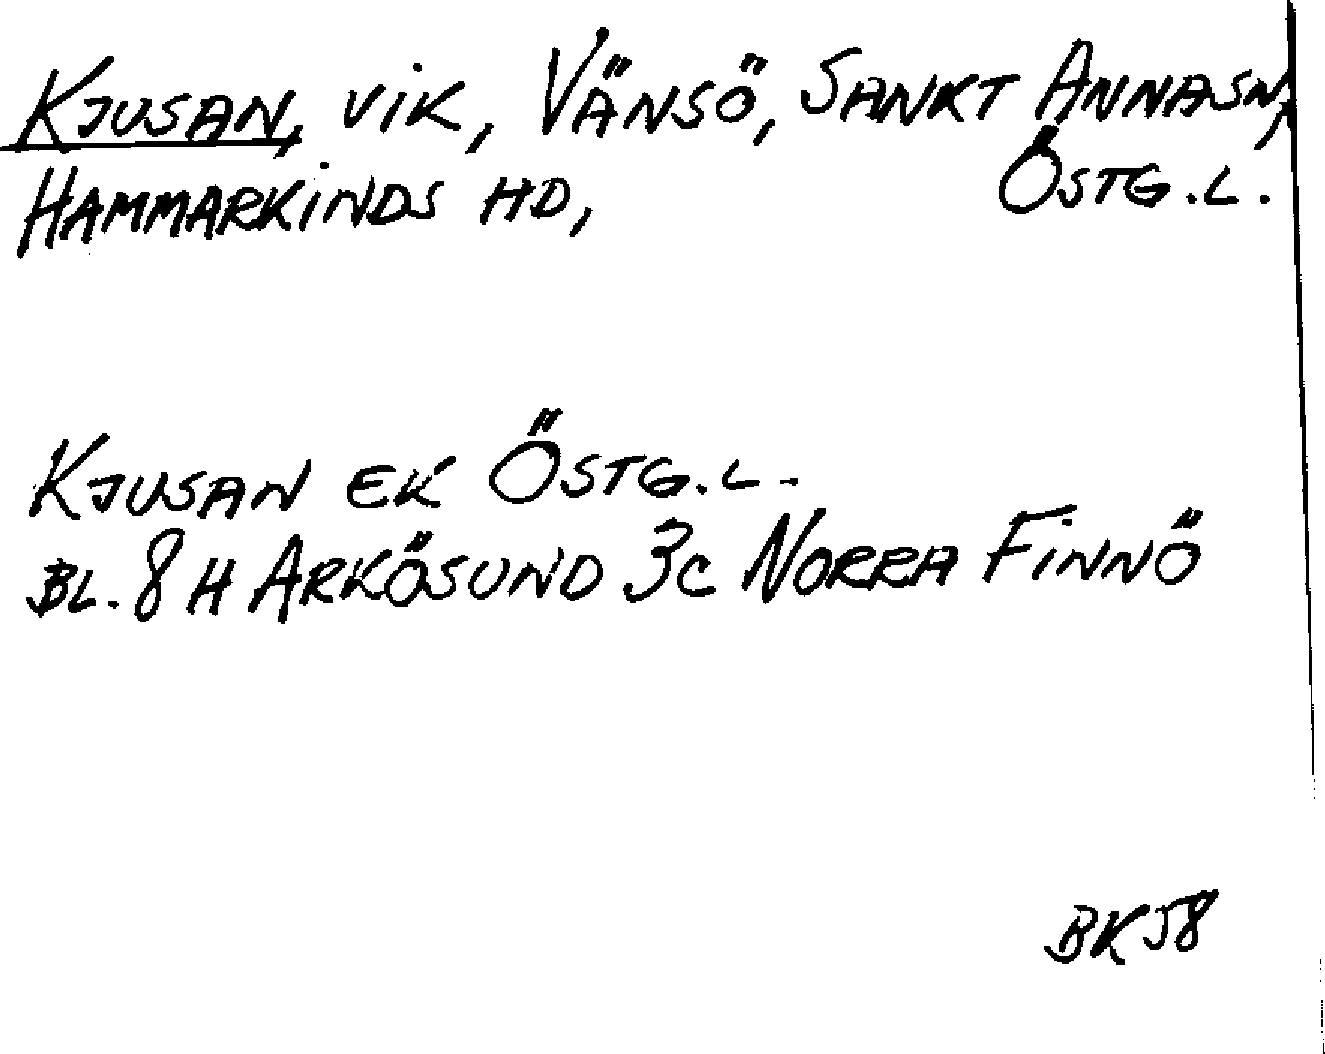 KJUSAN, VIK, VÄNSÖ, SANKT ANNA SN,
HAMMARKINDS HD, ÖSTG.L.
KJUSAN EK ÖSTG.L.
BL. 8H ARKÖSUND 3C NORRA FINNÖ
BK58